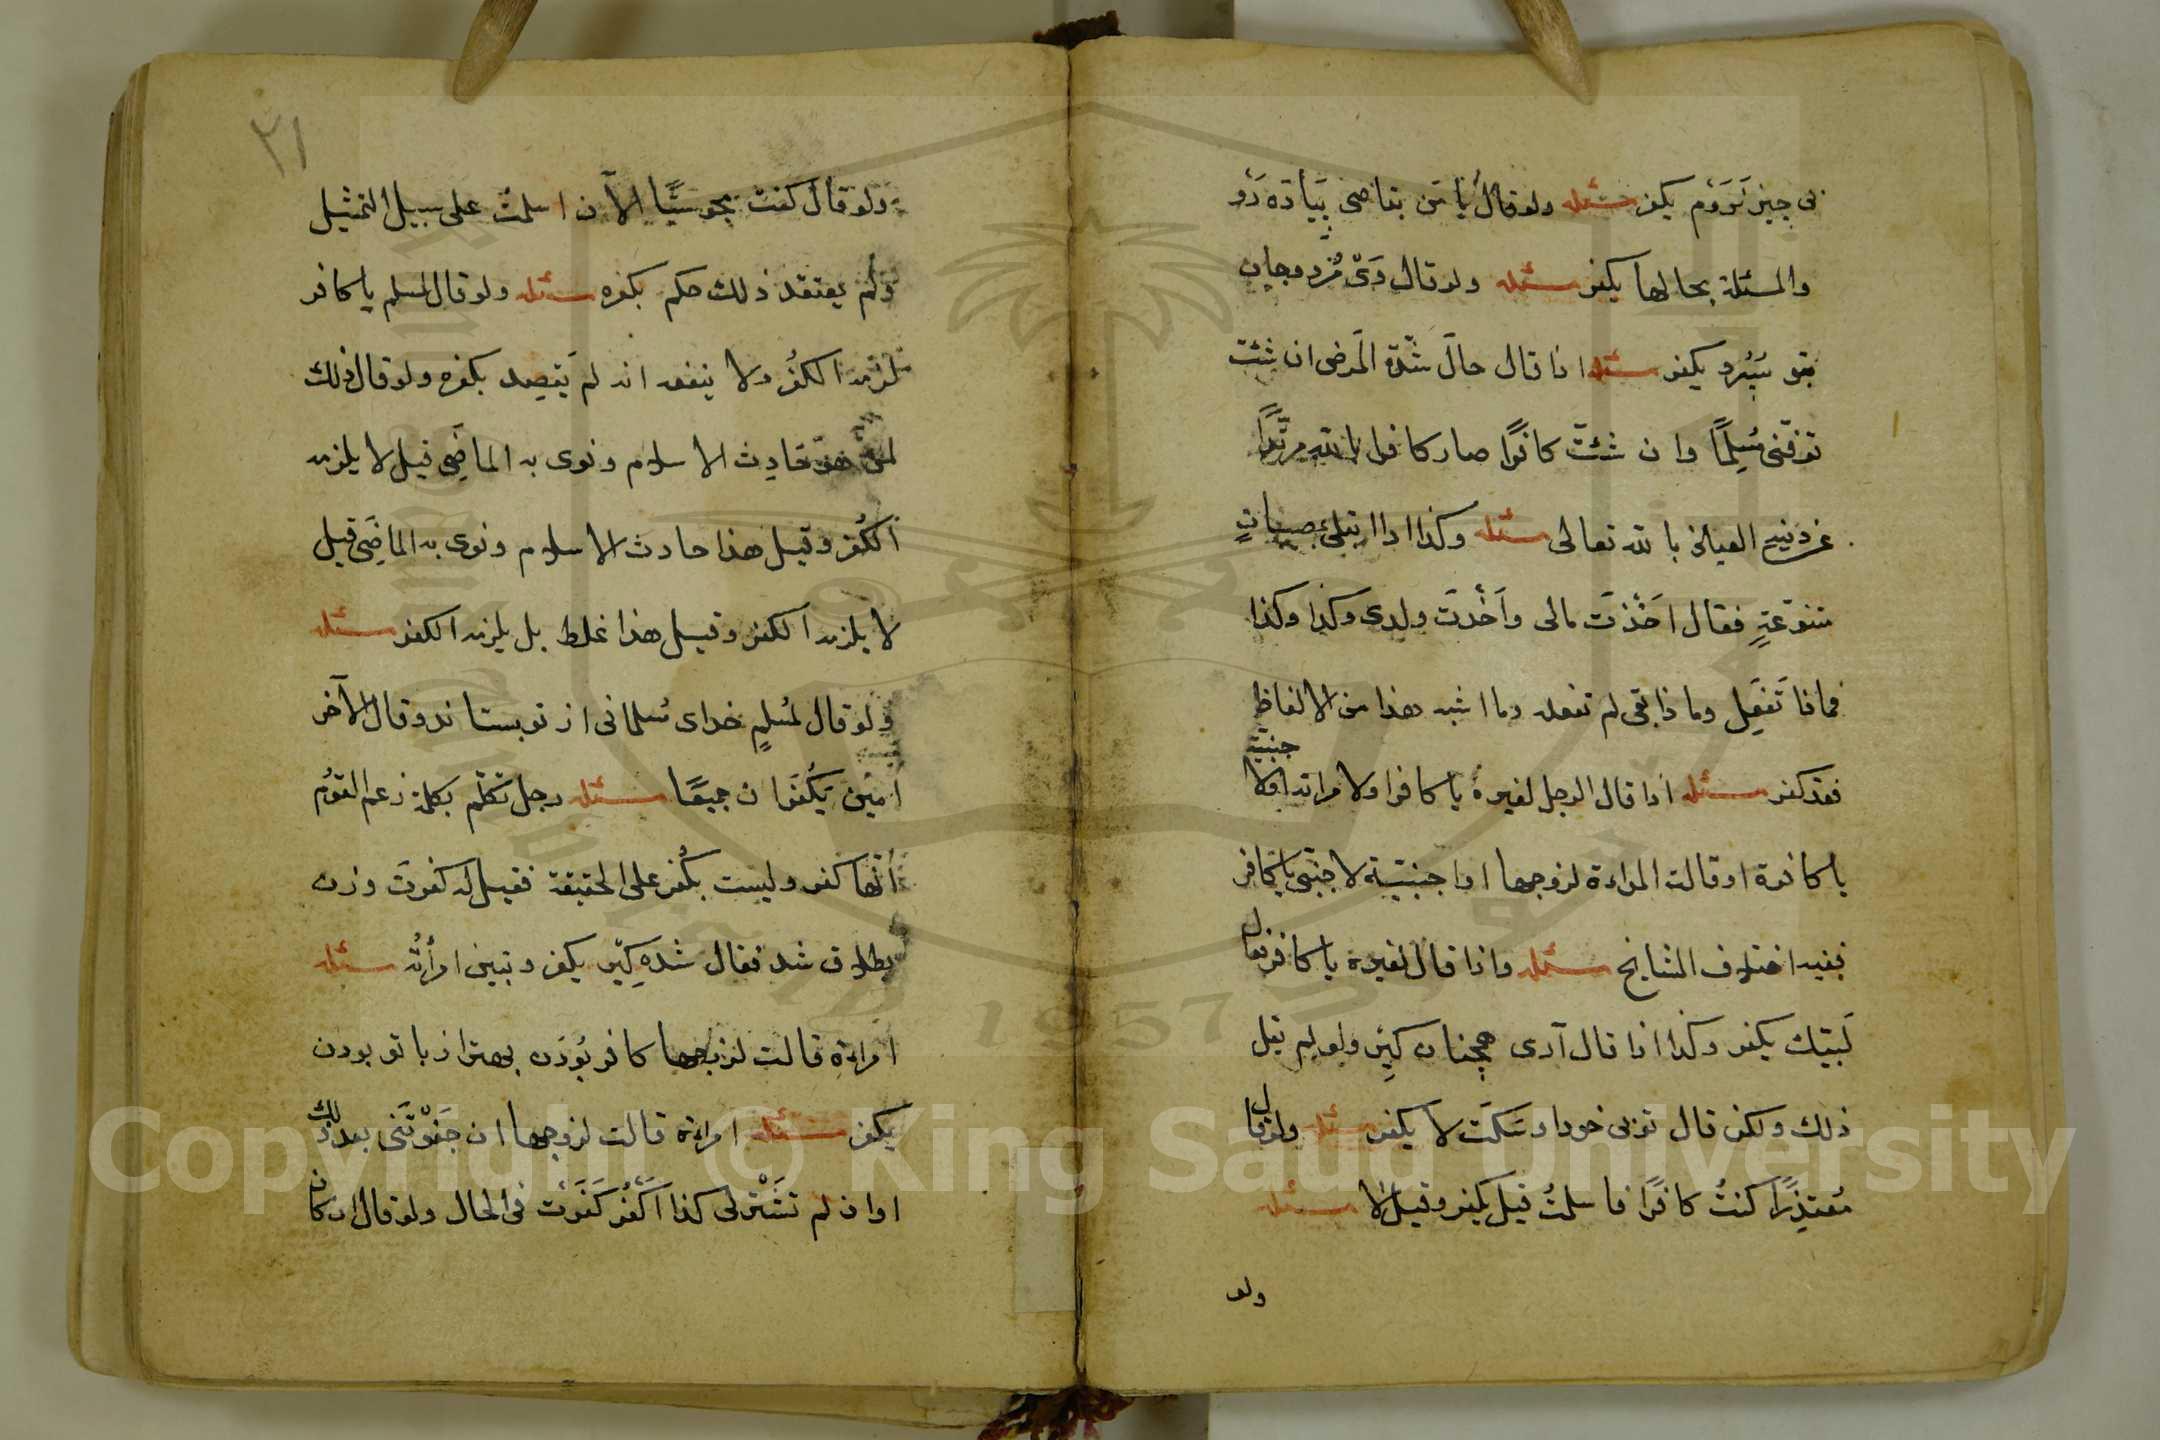 نى جيز نَرَوَم يكفر مسئله ولو قال يا من بقاضى پياده دو
والمسئلة بحالها يكفر مسئله ولو قال وى مزد وجان
بتو سپرد يكفر مسئله اذا قال حال شدّة المرض ان شئت
توفّنى مُسلِمًا وان شئتَ كافرًا صار كافرا بالله مرتدًّا
عن دينه العياذ بالله تعالى مسئله وكذا اذا ابتلى بمصيباتٍ
متنوّعةٍ فقال اَخَذْتَ مالى واَخَذْتَ ولدى وكذا وكذا
فماذا تَفعَل وماذا بقى لم تفعله وما اشبه هذا من الالفاظ
فقد كفر مسئله اذا قال الرجل لغيره يا كافر او لامراته او لاجنبية
يا كافرة او قالت المراءة لزوجها او اجنبيّة لاجنبّى يا كافر
ففيه اختلاف المشايخ مسئله واذا قال لغيره يا كافر فقال
لَبّيك يكفر وكذا اذا قال آرى همچنان گير ولو لم يقل
ذلك ولكن قال توى خود او سَكَتَ لا يكفر مسئله ولو قال
مُعتذِرًا كنتُ كافرًا فاسلمتُ قيل يكفر وقيل لا مسئله
ولو
٢١
ولو قال كنت مجوسيًّا الآن اسلمتُ على سبيل التمثيل
ولم يعتقد ذلك حكم بكفره مسئله ولو قال لمسلم يا كافر
لزمه الكفرُ ولا ينفعه انه لم يَقصِد بكفره ولو قال ذلك
لمن هو حَادِث الاسلام ونوى به الماضِى قيل لا يلزمه
الكُفر وقيل هذا حادث الاسلام ونوى به الماضِى قيل
لا يلزمه الكفر وقيل هذا غلط بل يلزمه الكفر مسئله
ولو قال لمُسلمٍ خداى مُسلمانى از تو بستاند وقال الآخر
امين يَكُفرَان جميعًا مسئله رجل تكلّم بكلمة زعم القومُ
انّها كفر وليست بكُفر على الحقيقة فقيل له كفرتَ وزن
بطلاق شد فقال شده گير يكفر وتبين امرأتُه مسئله
امراءة قالت لزوجها كافر بُودَن بهتر از با تو بودن
يكفر مسئله امراءة قالت لزوجها ان جَفَوْتَنى بعد ذلك
او ان لم تشْتَر لى كذا اَكْفُر كَفَرَت فى الحال ولو قال ان كان